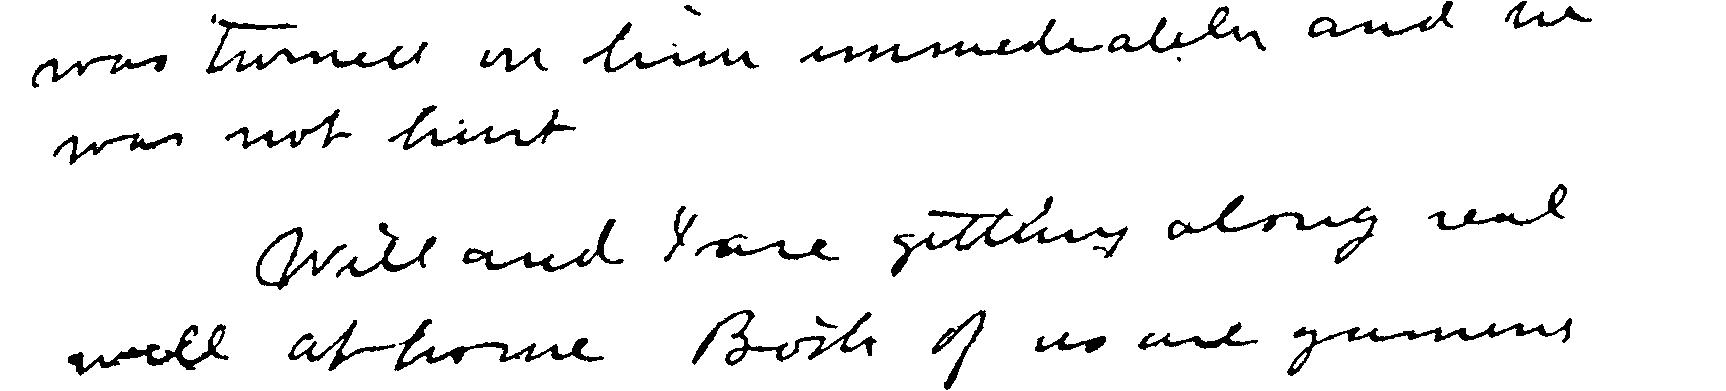 was turned on him immediately and he
was not hurt
Will and I are getting along real
well at home Both of us are